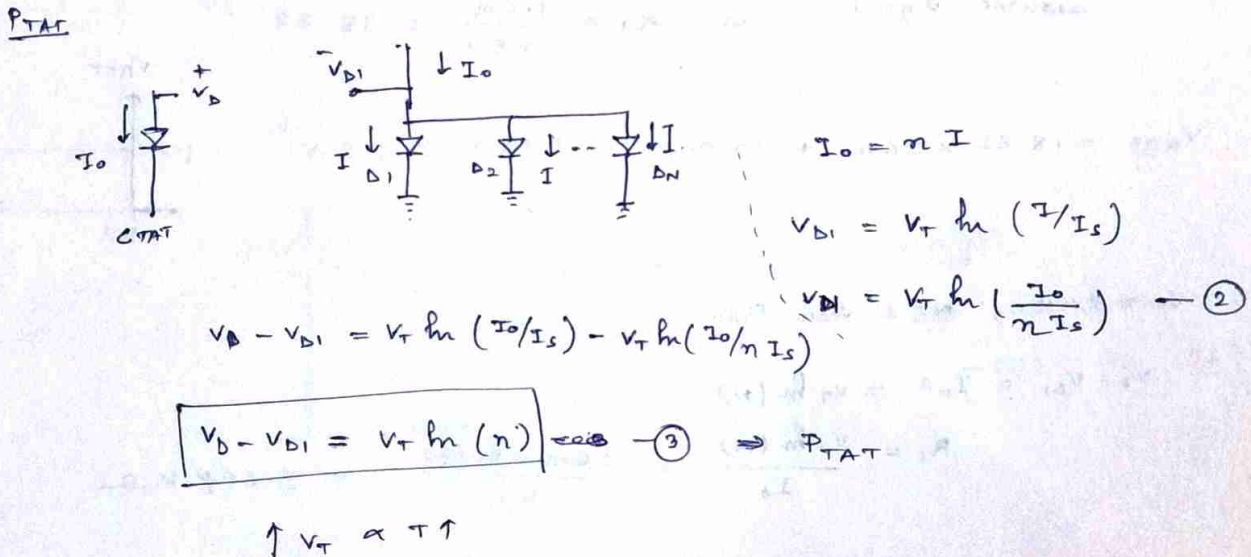 PTAT
+
VD
I0
CTAT
VD1
↓ I0
I ↓ D1
D2 ↓ I
--
↓ I DN
I0 = n I
VD1 = VT ln (I/Is)
VD1 = VT ln (I0/n Is) — ②
VD - VD1 = VT ln (I0/Is) - VT ln (I0/n Is)
VD - VD1 = VT ln (n) — ③ ⇒ PTAT
↑ VT ∝ T ↑